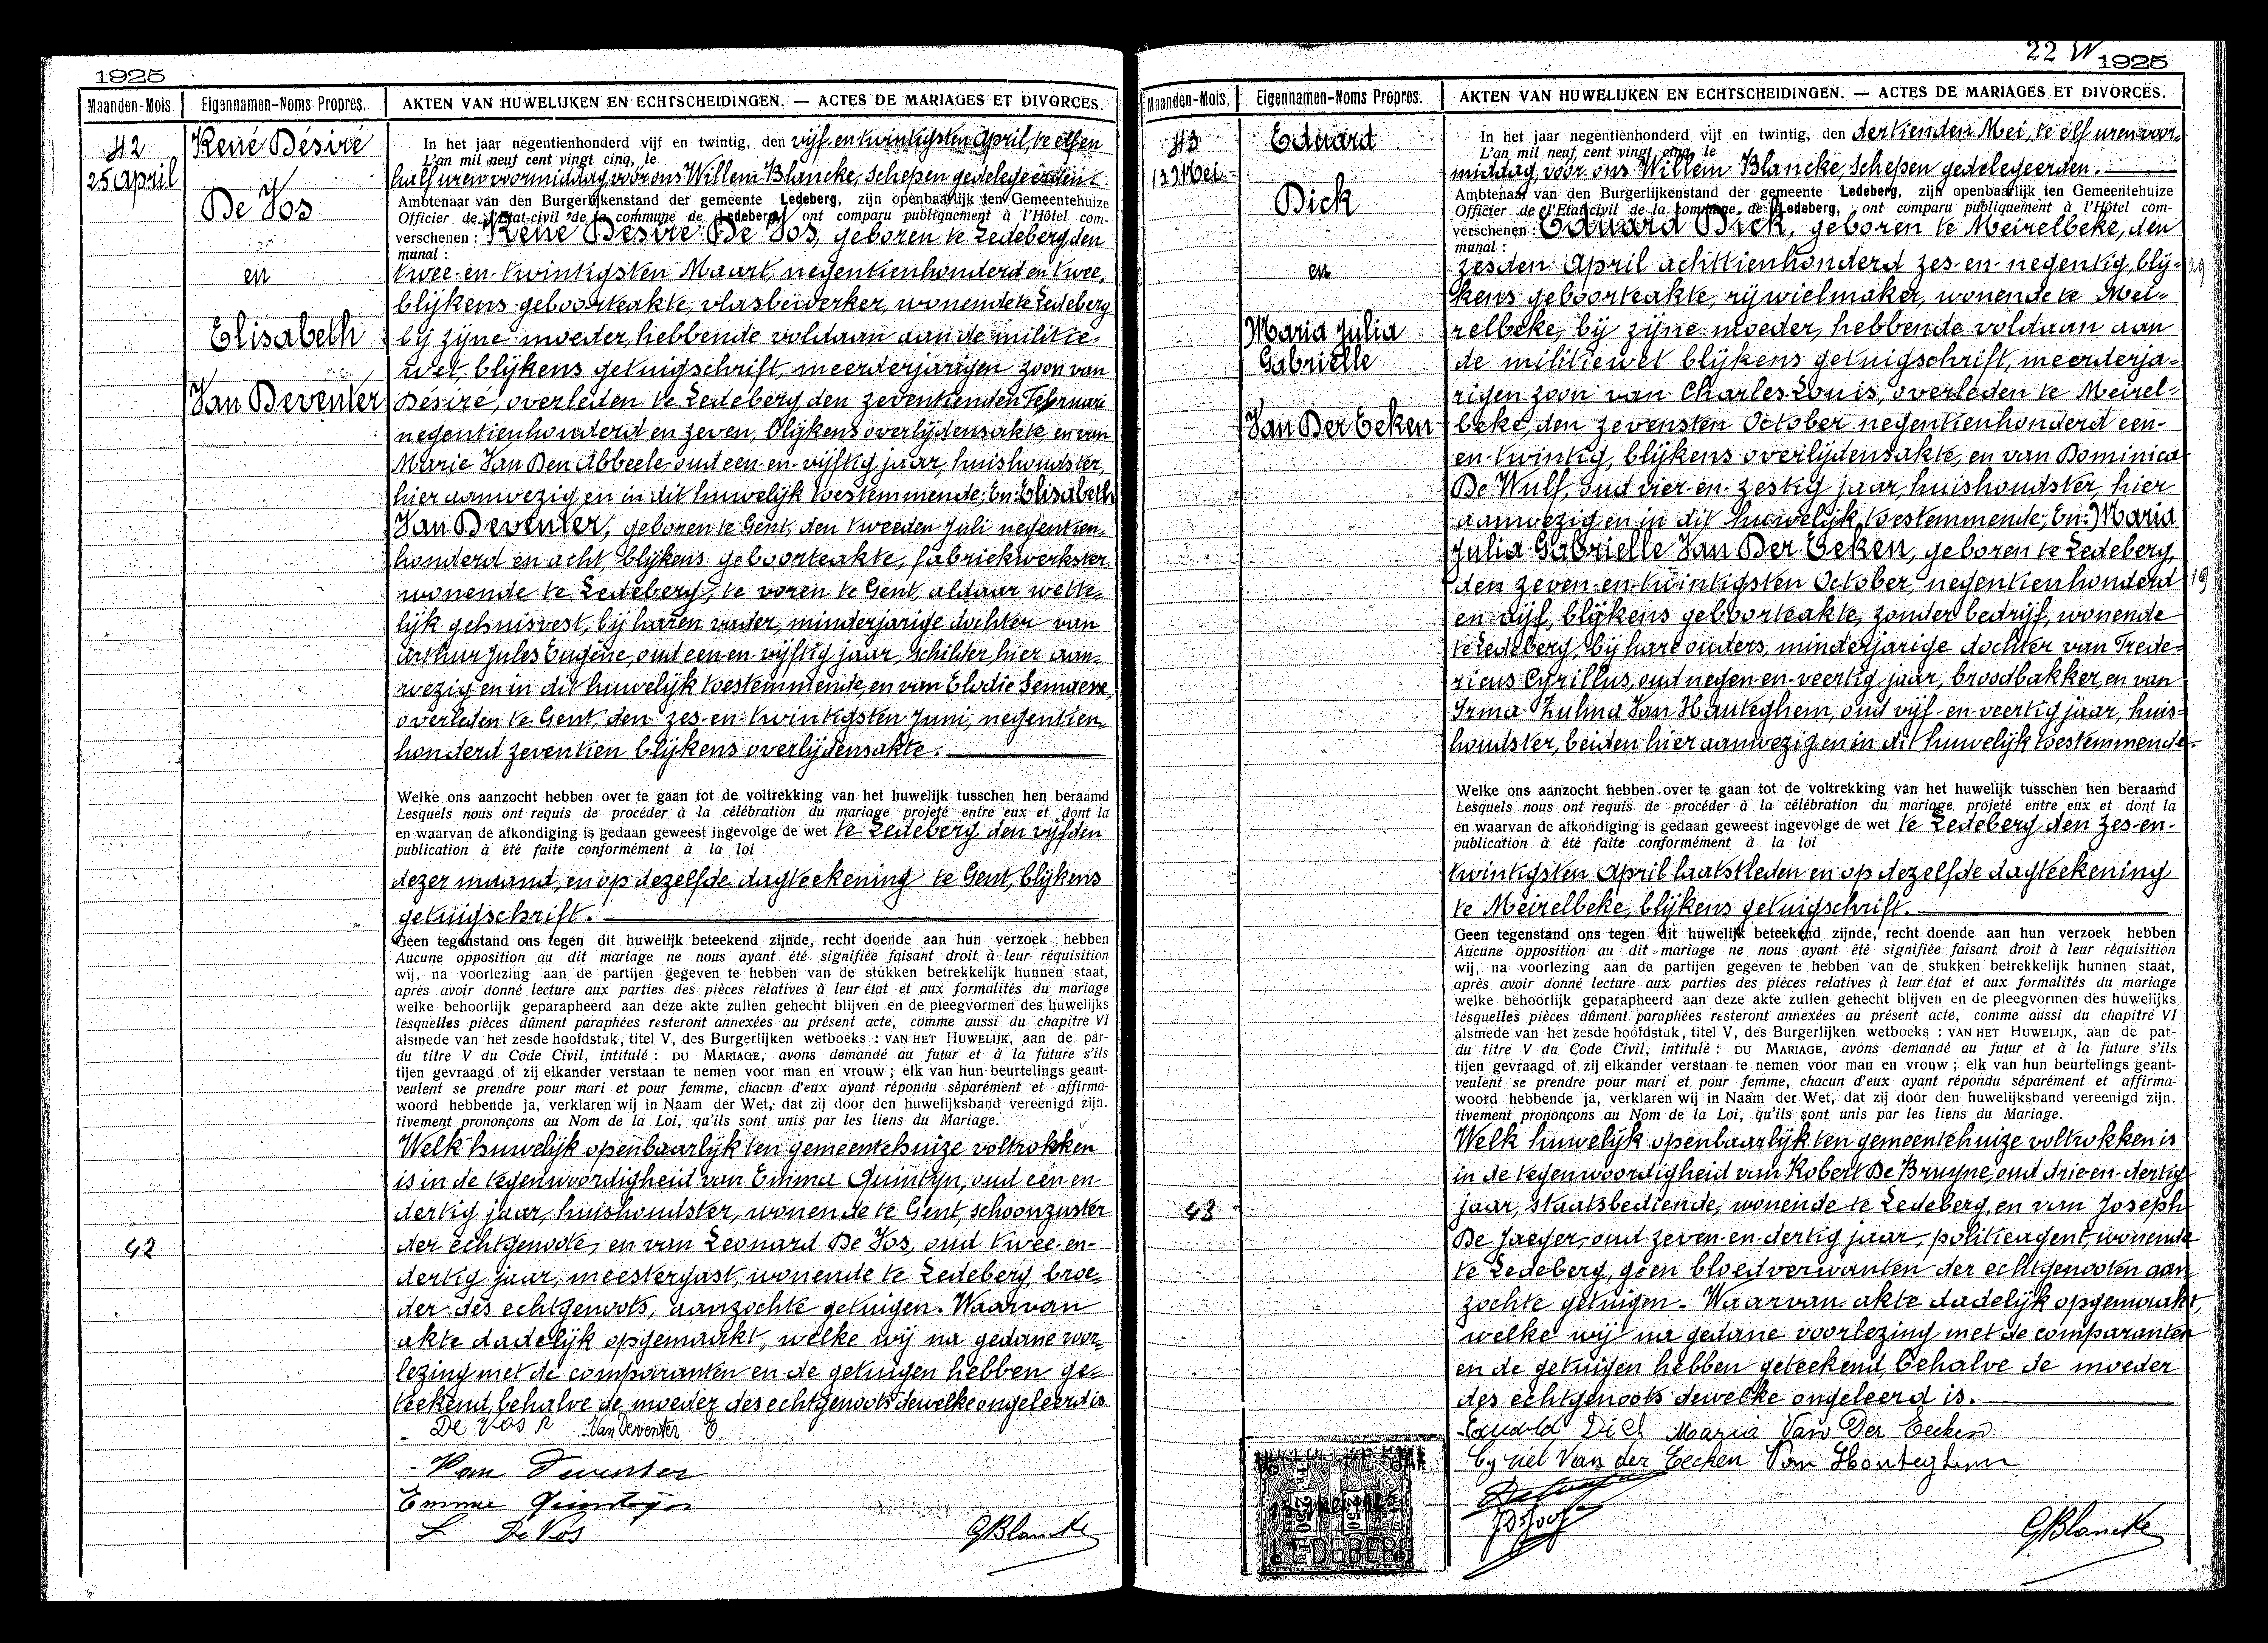 1925
Maanden-Mois.
Eigennamen-Noms Propres.
AKTEN VAN HUWELIJKEN EN ECHTSCHEIDINGEN. — ACTES DE MARIAGES ET DIVORCES.
42
25 April
René Désiré
De Vos
en
Elisabeth
Van Deventer
In het jaar negentienhonderd vijf en twintig, den vijf-en-twintigsten April, te elf en
L'an mil neuf cent vingt cinq, le
half uren voormiddag, voor ons Willem Blancke, Schepen gedelegeerden
Ambtenaar van den Burgerlijkenstand der gemeente Ledeberg, zijn openbaarlijk ten Gemeentehuize
Officier de l'Etat-civil de la commune de Ledeberg, ont comparu publiquement à l'Hôtel com-
verschenen : René Désiré De Vos, geboren te Ledeberg, den
munal :
twee-en-twintigsten Maart, negentienhonderd en twee,
blijkens geboorteakte, vlasbewerker, wonende te Ledeberg
bij zijne moeder, hebbende voldaan aan de militie-
wet blijkens getuigschrift, meerderjarigen zoon van
Désiré, overleden te Ledeberg, den zeventienden Februari
negentienhonderd en zeven, blijkens overlijdensakte, en van
Marie Van Den Abbeele, oud een-en-vijftig jaar, huishoudster,
hier aanwezig en in dit huwelijk toestemmende; En: Elisabeth
Van Deventer, geboren te Gent, den tweeden Juli negentien-
honderd en acht, blijkens geboorteakte, fabriekwerkster
wonende te Ledeberg, te voren te Gent, aldaar wette-
lijk gehuisvest, bij haren vader, minderjarige dochter van
Arthur Jules Eugène, oud een-en-vijftig jaar, schilder, hier aan-
wezig en in dit huwelijk toestemmende, en van Elodie
overleden te Gent, den zes-en-twintigsten Juni, negentien-
honderd zeventien blijkens overlijdensakte.
Welke ons aanzocht hebben over te gaan tot de voltrekking van het huwelijk tusschen hen beraamd
Lesquels nous ont requis de procéder à la célébration du mariage projeté entre eux et dont la
en waarvan de afkondiging is gedaan geweest ingevolge de wet te Ledeberg den vijfden
publication à été faite conformément à la loi
dezer maand, en op dezelfde dagteekening te Gent, blijkens
getuigschrift.
Geen tegenstand ons tegen dit huwelijk beteekend zijnde, recht doende aan hun verzoek hebben
Aucune opposition au dit mariage ne nous ayant été signifiée faisant droit à leur réquisition
wij, na voorlezing aan de partijen gegeven te hebben van de stukken betrekkelijk hunnen staat,
après avoir donné lecture aux parties des pièces relatives à leur état et aux formalités du mariage
welke behoorlijk geparapheerd aan deze akte zullen gehecht blijven en de pleegvormen des huwelijks
lesquelles pièces dûment paraphées resteront annexées au présent acte, comme aussi du chapitre VI
alsmede van het zesde hoofdstuk, titel V, des Burgerlijken wetboeks : VAN HET HUWELIJK, aan de par-
du titre V du Code Civil, intitulé : DU MARIAGE, avons demandé au futur et à la future s'ils
tijen gevraagd of zij elkander verstaan te nemen voor man en vrouw ; elk van hun beurtelings geant-
veulent se prendre pour mari et pour femme, chacun d'eux ayant répondu séparément et affirma-
woord hebbende ja, verklaren wij in Naam der Wet, dat zij door den huwelijksband vereenigd zijn.
tivement prononçons au Nom de la Loi, qu'ils sont unis par les liens du Mariage.
Welk huwelijk openbaarlijk ten gemeentehuize voltrokken
is in de tegenwoordigheid van Emma Quintyn, oud een-en-
dertig jaar, huishoudster, wonende te Gent, schoonzuster
der echtgenoote, en van Leonard De Vos, oud twee-en-
42
dertig jaar, meestergast, wonende te Ledeberg, broe-
der des echtgenoots, aanzochte getuigen. Waarvan
akte dadelijk opgemaakt, welke wij na gedane voor-
lezing met de comparanten en de getuigen hebben ge-
teekend, behalve de moeder des echtgenoots dewelke ongeleerd is
De Vos R Van Deventer E.
Van Deventer
Emma Quintyn
L De Vos GBlancke
22 W
1925
Maanden-Mois.
Eigennamen-Noms Propres.
AKTEN VAN HUWELIJKEN EN ECHTSCHEIDINGEN. — ACTES DE MARIAGES ET DIVORCES.
43
13 Mei
Eduard
Dick
en
Maria Julia
Gabrielle
Van Der Eeken
In het jaar negentienhonderd vijf en twintig, den dertienden Mei, te elf uren voor-
L'an mil neuf cent vingt cinq, le
middag, voor ons Willem Blancke, Schepen gedelegeerden.
Ambtenaar van den Burgerlijkenstand der gemeente Ledeberg, zijn openbaarlijk ten Gemeentehuize
Officier de l'Etat-civil de la commune de Ledeberg, ont comparu publiquement à l'Hôtel com-
verschenen : Eduard Dick, geboren te Meirelbeke, den
munal :
zesden April achttienhonderd zes-en-negentig, blij-
kens geboorteakte, rijwielmaker, wonende te Mei-
relbeke, bij zijne moeder, hebbende voldaan aan
de militiewet blijkens getuigschrift, meerderja-
rigen zoon van Charles Louis, overleden te Meirel-
beke, den zevensten October negentienhonderd een-
en-twintig, blijkens overlijdensakte, en van Dominica
De Wulf, oud vier-en-zestig jaar, huishoudster, hier
aanwezig en in dit huwelijk toestemmende; En: Maria
Julia Gabrielle Van Der Eeken, geboren te Ledeberg,
den zeven-en-twintigsten October, negentienhonderd
19
en vijf, blijkens geboorteakte, zonder bedrijf, wonende
te Ledeberg, bij hare ouders, minderjarige dochter van Frede-
ricus Cyrillus, oud negen-en-veertig jaar, broodbakker, en van
Irma Zulma Van Hauteghem, oud vijf-en-veertig jaar, huis-
houdster, beiden hier aanwezig en in dit huwelijk toestemmende.
Welke ons aanzocht hebben over te gaan tot de voltrekking van het huwelijk tusschen hen beraamd
Lesquels nous ont requis de procéder à la célébration du mariage projeté entre eux et dont la
en waarvan de afkondiging is gedaan geweest ingevolge de wet te Ledeberg den zes-en-
publication à été faite conformément à la loi
twintigsten April laatstleden en op dezelfde dagteekening
te Meirelbeke, blijkens getuigschrift.
Geen tegenstand ons tegen dit huwelijk beteekend zijnde, recht doende aan hun verzoek hebben
Aucune opposition au dit mariage ne nous ayant été signifiée faisant droit à leur réquisition
wij, na voorlezing aan de partijen gegeven te hebben van de stukken betrekkelijk hunnen staat,
après avoir donné lecture aux parties des pièces relatives à leur état et aux formalités du mariage
welke behoorlijk geparapheerd aan deze akte zullen gehecht blijven en de pleegvormen des huwelijks
lesquelles pièces dûment paraphées resteront annexées au présent acte, comme aussi du chapitre VI
alsmede van het zesde hoofdstuk, titel V, des Burgerlijken wetboeks : VAN HET HUWELIJK, aan de par-
du titre V du Code Civil, intitulé : DU MARIAGE, avons demandé au futur et à la future s'ils
tijen gevraagd of zij elkander verstaan te nemen voor man en vrouw ; elk van hun beurtelings geant-
veulent se prendre pour mari et pour femme, chacun d'eux ayant répondu séparément et affirma-
woord hebbende ja, verklaren wij in Naam der Wet, dat zij door den huwelijksband vereenigd zijn.
tivement prononçons au Nom de la Loi, qu'ils sont unis par les liens du Mariage.
Welk huwelijk openbaarlijk ten gemeentehuize voltrokken is
in de tegenwoordigheid van Robert De Bruyne, oud drie-en-dertig
43
jaar, staatsbediende, wonende te Ledeberg, en van Joseph
De Jaeger, oud zeven-en-dertig jaar, politieagent, wonende
te Ledeberg, geen bloedverwanten der echtgenooten aan-
zochte getuigen. Waarvan akte dadelijk opgemaakt,
welke wij na gedane voorlezing met de comparanten
en de getuigen hebben geteekend, behalve de moeder
des echtgenoots dewelke ongeleerd is.
Eduard Dick Maria Van Der Eecken
Cyriel Van der Eecken Van Hauteghem
GBlancke
2.50 Fr
LEDEBERG